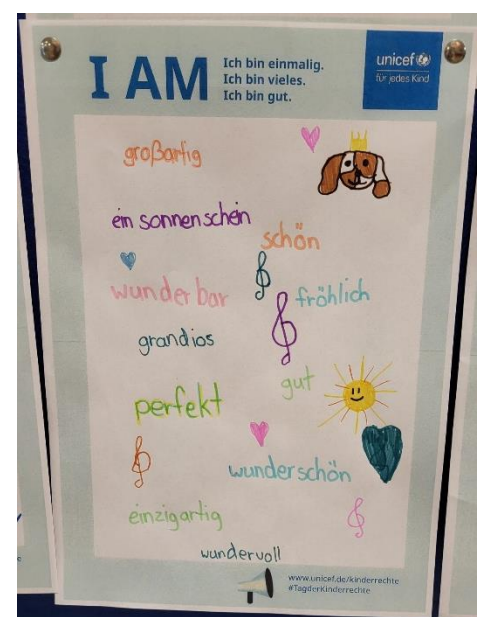 I AM
Ich bin einmalig.
Ich bin vieles.
Ich bin gut.
unicef
für jedes Kind
großartig
ein sonnenschein
schön
wunderbar
fröhlich
grandios
gut
perfekt
wunderschön
einzigartig
wundervoll
www.unicef.de/kinderrechte
#TagderKinderrechte